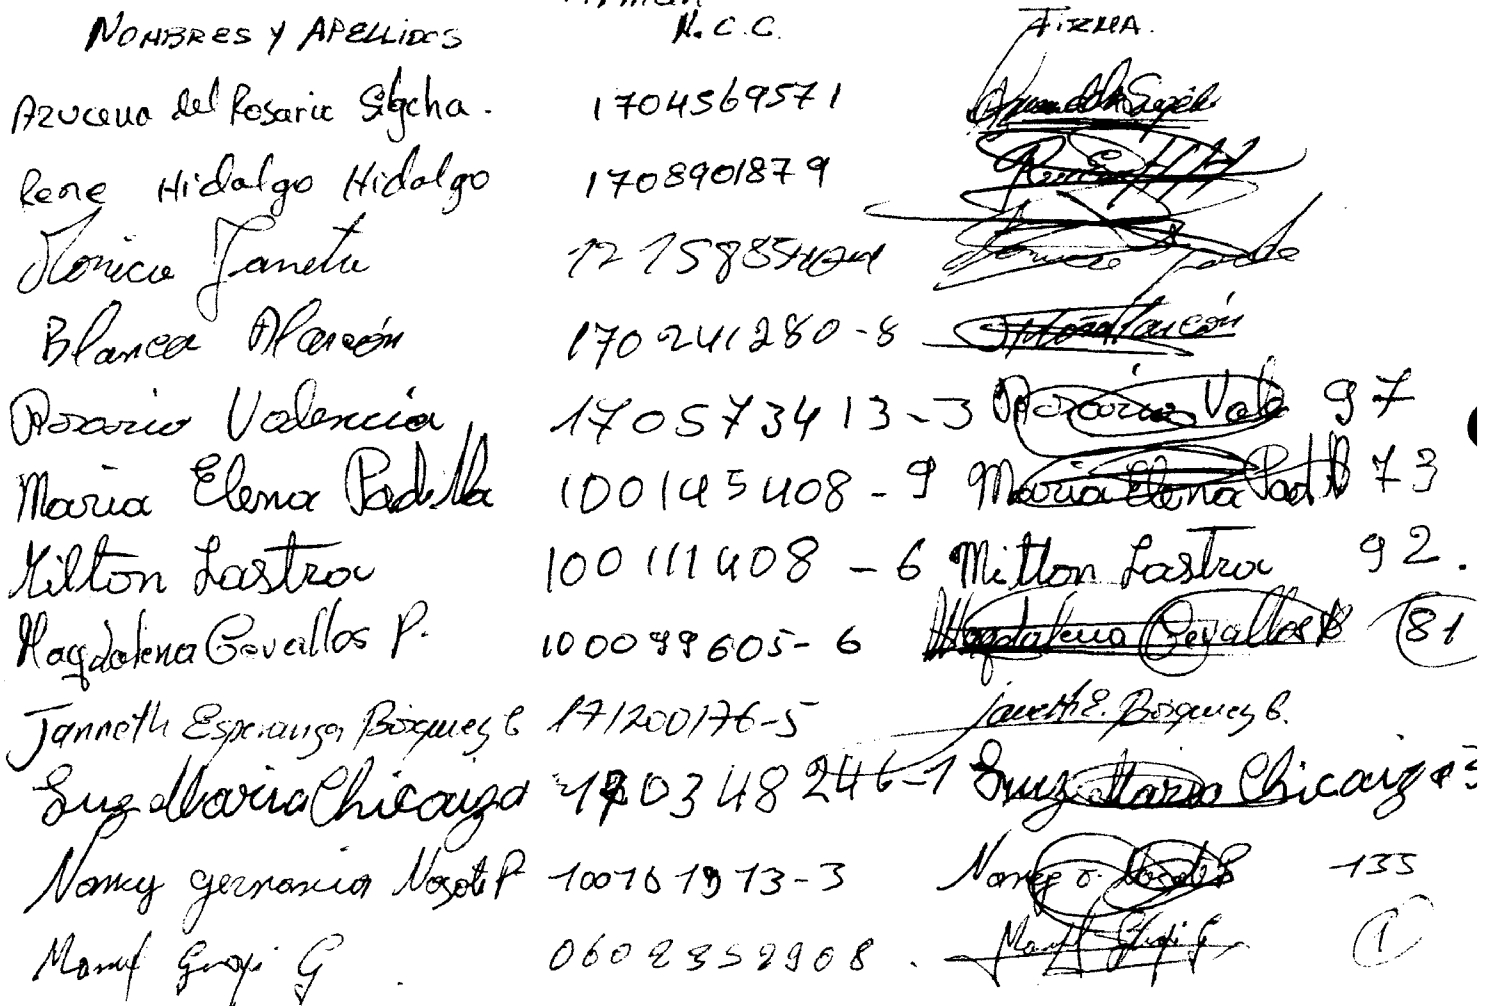 NOMBRES Y APELLIDOS N. C. C. FIRMA.
Azucena del Rosario Sigcha. 1704569571
Rene Hidalgo Hidalgo 1708901879
Monica Janeta
Blanca Alarcón 170241280-8
Rosario Valencia 170573413-3 Rosario Vale 97
Maria Elena Padilla 100145408-9 Maria Elena Padill 73
Milton Lastra 100111408-6 Milton Lastra 92.
Magdalena Cevallos P. 100099605-6 Magdalena Cevallos P 81
Janneth Esperanza Bosquez C 171200176-5 Janeth E. Bosquez C.
Luz Maria Chicaiza 170348246-1 Luz Maria Chicaiza
Nancy germania P 100161913-3 Nancy G. P 133
Manuel G 0602352908. 1